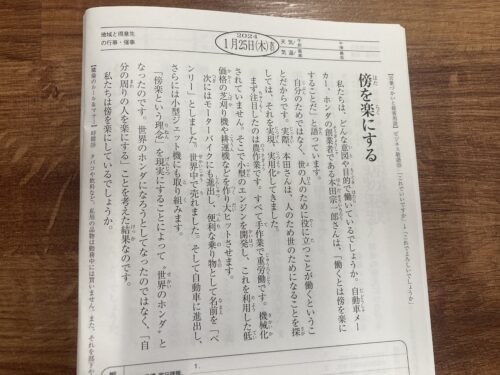 地域と得意先
の行事・催事
2024
1月25日(木)
天気
気温
午前
午後
傍を楽にする
私たちは、どんな意図や目的で働いているでしょうか。自動車メー
カー、ホンダの創業者である本田宗一郎さんは、「働くとは傍を楽に
することだ」と語っています。
自分のためではなく、世の人のために役に立つことが働くというこ
とだからです。実際、本田さんは、人のため世のためになることを探
しては、それを実現、実用化してきました。
まず注目したのは農作業です。すべて手作業で重労働です。機械化
されていません。そこで小型のエンジンを開発し、これを利用した低
価格の芝刈り機や耕運機などを作り大ヒットさせます。
次にはモーターバイクにも進出し、便利な乗り物として名前を「ベ
ンリー」としました。世界中で売れました。そして自動車に進出し、
さらには小型ジェット機にも取り組みます。
「傍楽という理念」を現実にすることによって〝世界のホンダ〟と
なったのです。世界のホンダになろうとしてなったのではなく、「自
分の周りの人を楽にする」ことを考えた結果なのです。
私たちは傍を楽にしているでしょうか。